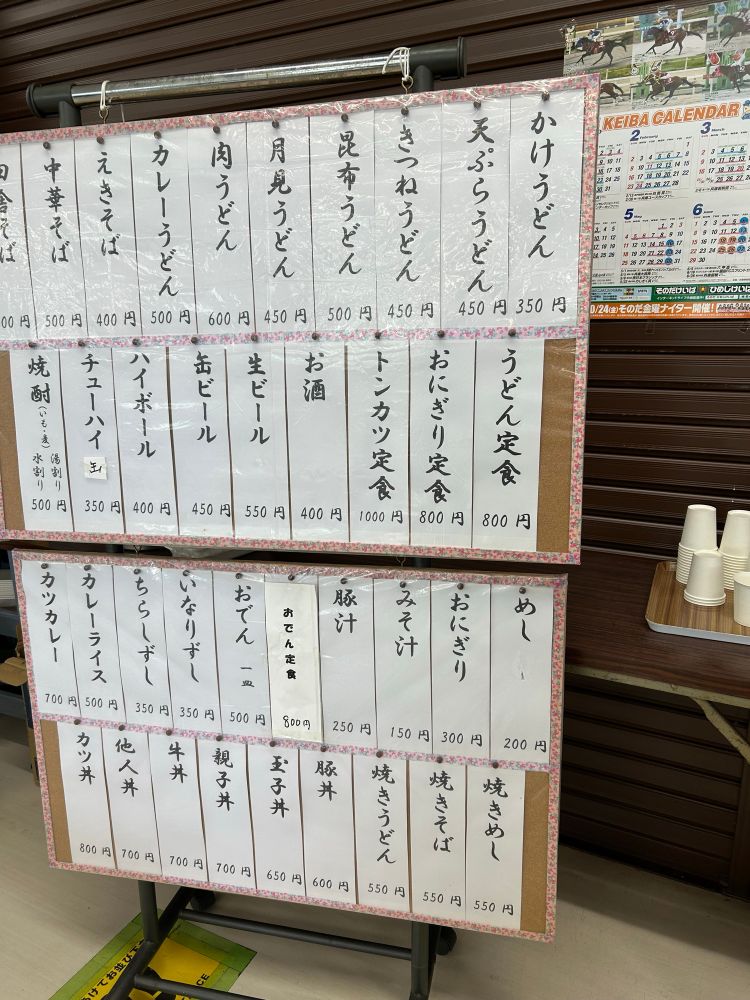 かけうどん 350円
天ぷらうどん 450円
きつねうどん 450円
昆布うどん 500円
月見うどん 450円
肉うどん 600円
カレーうどん 500円
えきそば 400円
中華そば 500円
田舎そば
うどん定食 800円
おにぎり定食 800円
トンカツ定食 1000円
お酒 400円
生ビール 550円
缶ビール 450円
ハイボール 400円
チューハイ 350円
焼酎(いも・麦) 湯割り 水割り 500円
めし 200円
おにぎり 300円
みそ汁 150円
豚汁 250円
おでん定食 800円
おでん 一皿 500円
いなりずし 350円
ちらしずし 350円
カレーライス 500円
カツカレー 700円
焼きめし 550円
焼きそば 550円
焼きうどん 550円
豚丼 600円
玉子丼 650円
親子丼 700円
牛丼 700円
他人丼 700円
カツ丼 800円
KEIBA CALENDAR
2 February
3 March
5 May
6 June
そのだけいば
ひめじけいば
0/24(金)そのだ金曜ナイター開催!